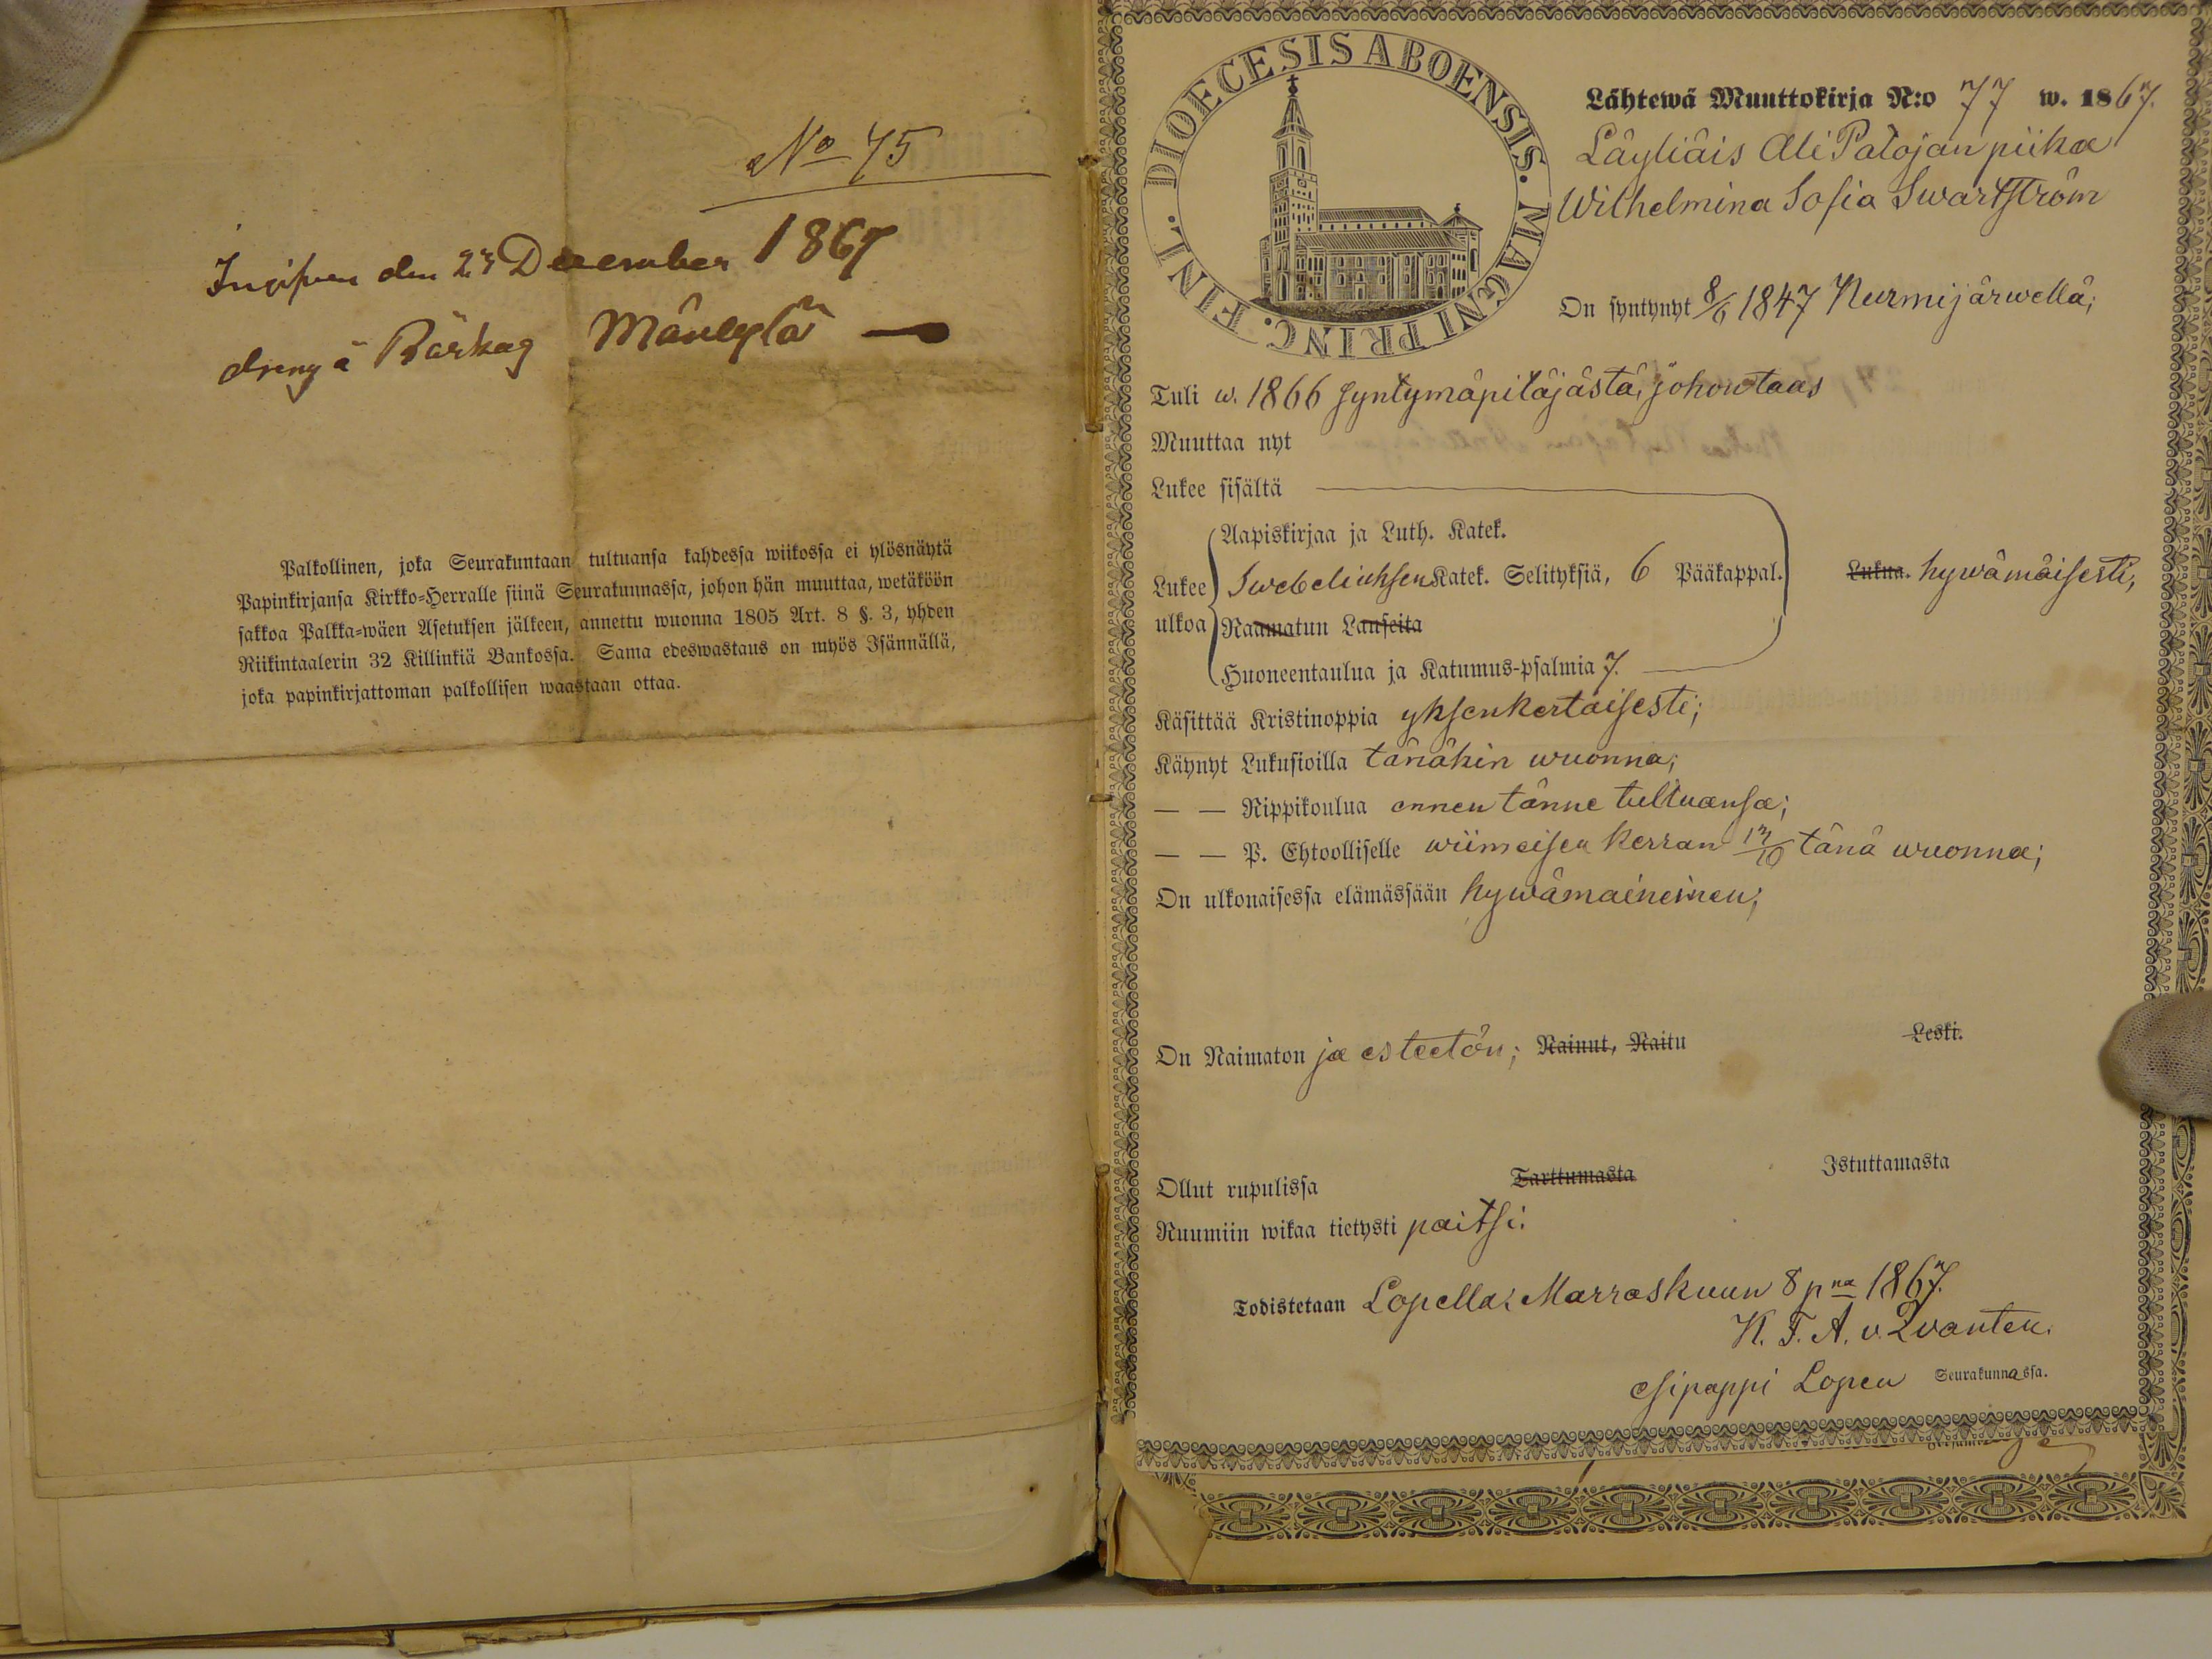 No 75
Ingifven den 23 December 1867
dreng å Mäntylä
Palkollinen, joka Seurakuntaan tultuansa kahdessa wiikossa ei ylösnäytä
Papinkirjansa Kirkko=Herralle siinä Seurakunnassa, johon hän muuttaa, wetäköön
sakkoa Palkka=wäen Asetuksen jälkeen, annettu wuonna 1805 Art. 8 §. 3, yhden
Riikintaalerin 32 Killinkiä Bankossa. Sama edeswastaus on myös Isännällä,
joka papinkirjattoman palkollisen waastaan ottaa.
DIOECESIS ABOENSIS. MAGNI PRINC. FINL.
Lähtewä Muuttokirja N:o 77 w. 1867.
Läyliäis Ali Patojan piika
Wilhelmina Sofia Swartström
On syntynyt 8/6 1847 Nurmijärwellä;
Tuli w. 1866 syntymäpitäjästä, johon taas
Muuttaa nyt
Lukee sisältä
Aapiskirjaa ja Luth. Katek.
Lukee ulkoa Swebeliuksen Katek. Selityksiä, 6 Pääkappal. Lukua. hywämäisesti,
Raamatun Lauseita
Huoneentaulua ja Katumus-psalmia 7.
Käsittää Kristinoppia yksenkertaisesti;
Käynyt Lukusioilla tänäkin wuonna;
— — Rippikoulua ennen tänne tultuansa;
— — P. Ehtoolliselle wiimeisen kerran 17/10 tänä wuonna;
On ulkonaisessa elämässään hywämaineinen;
On Naimaton ja esteetön; Nainut, Naitu Leski.
Ollut rupulissa Tarttumasta Istuttamasta
Ruumiin wikaa tietysti paitsi.
Todistetaan Lopella; Marraskuun 8 pna 1867.
K. F. A. v. Qvanten.
Apipappi Lopen Seurakunnassa.